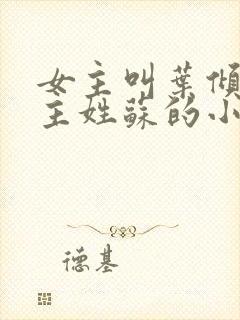 女主叫葉傾
主姓蘇的小
德基